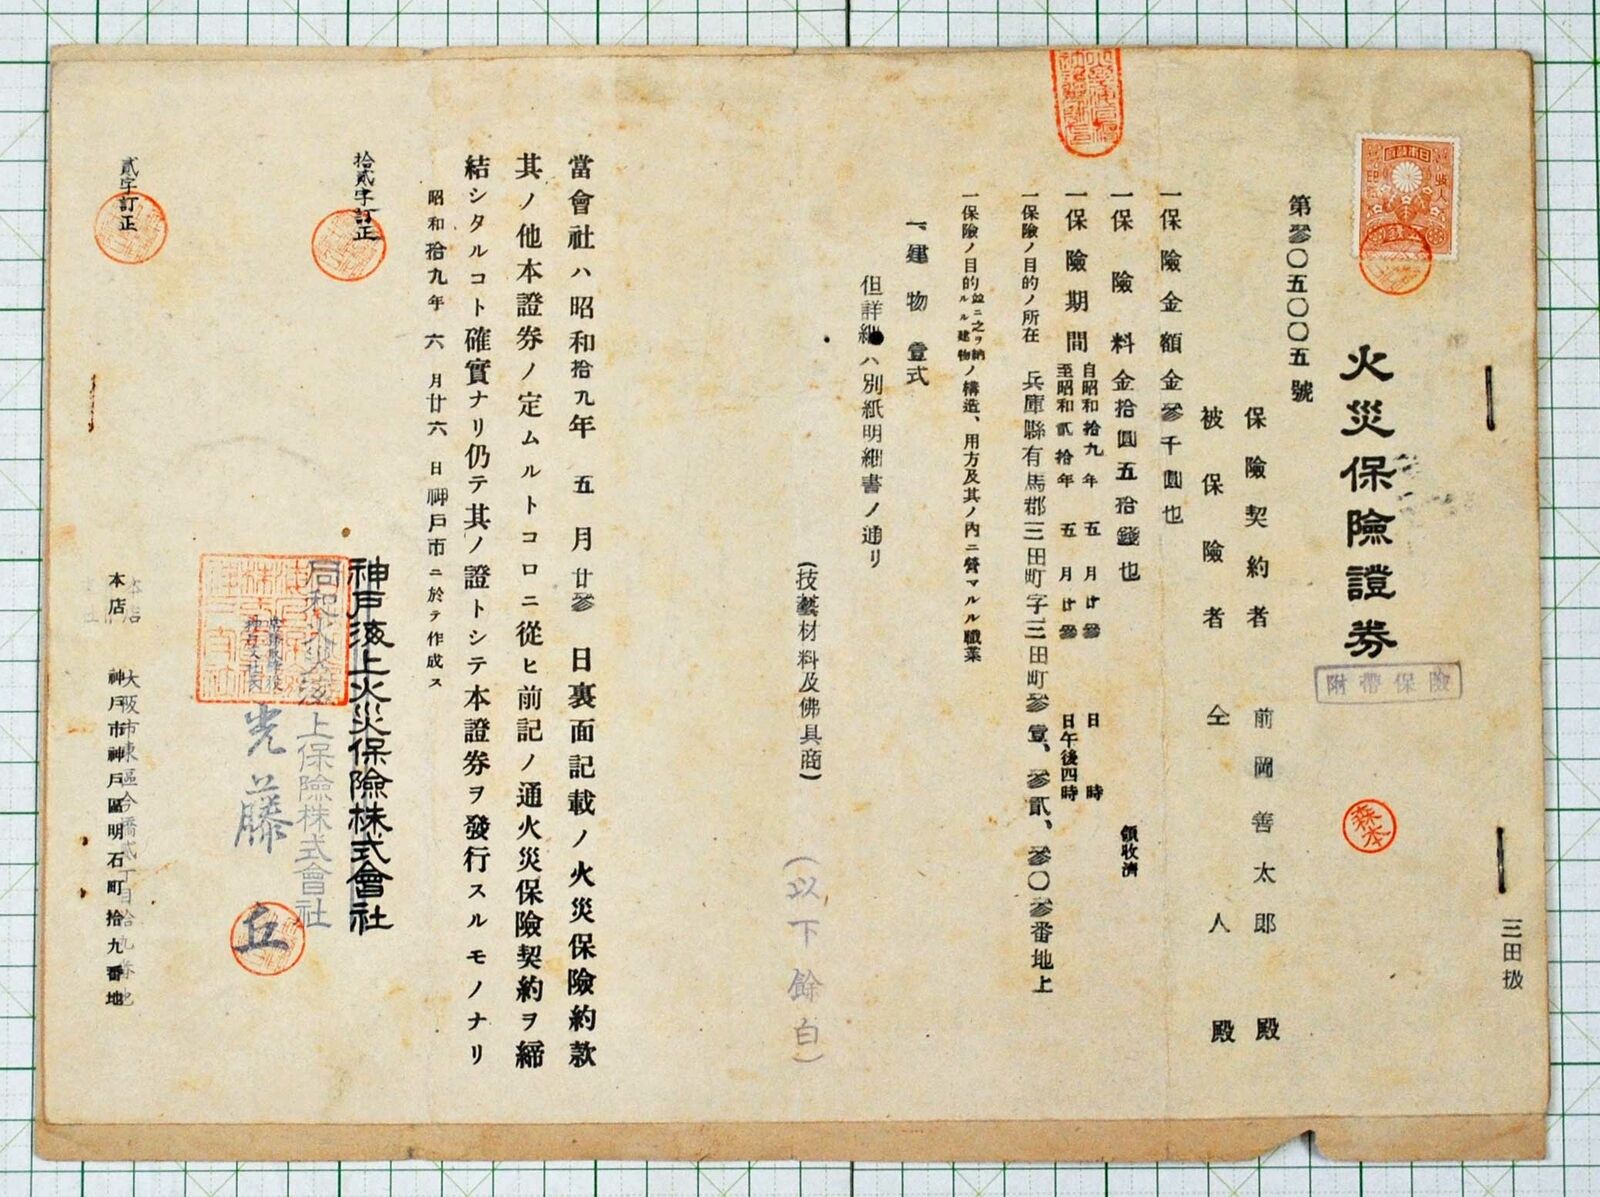 三田扱
火災保險證券
附帶保險
森本
第参〇五〇〇五號
保險契約者 前岡善太郎殿
被保險者 仝人殿
一保險金額金参千圓也
一保險料金拾圓五拾錢也 領收濟
一保險期間
自昭和拾九年五月廿参日 時
至昭和貳拾年五月廿参日午後四時
一保險ノ目的ノ所在 兵庫縣有馬郡三田町字三田町参壹、参貳、参〇参番地上
一保險ノ目的並ニ之ヲ納ルル建物ノ構造、用方及其ノ內ニ營マルル職業
一、建物壹式
但詳細ハ別紙明細書ノ通リ
(技藝材料及佛具商) (以下餘白)
當會社ハ昭和拾九年五月廿参日裏面記載ノ火災保險約款
其ノ他本證券ノ定ムルトコロニ從ヒ前記ノ通火災保險契約ヲ締
結シタルコト確實ナリ仍テ其ノ證トシテ本證券ヲ發行スルモノナリ
昭和拾九年六月廿六日神戶市ニ於テ作成ス
拾貳字訂正
神戶海上火災保險株式會社
同和火災海上保險株式會社
光藤丘
貳字訂正
本店 大阪市東區今橋貳丁目拾九番地
本店 神戶市神戶區明石町拾九番地